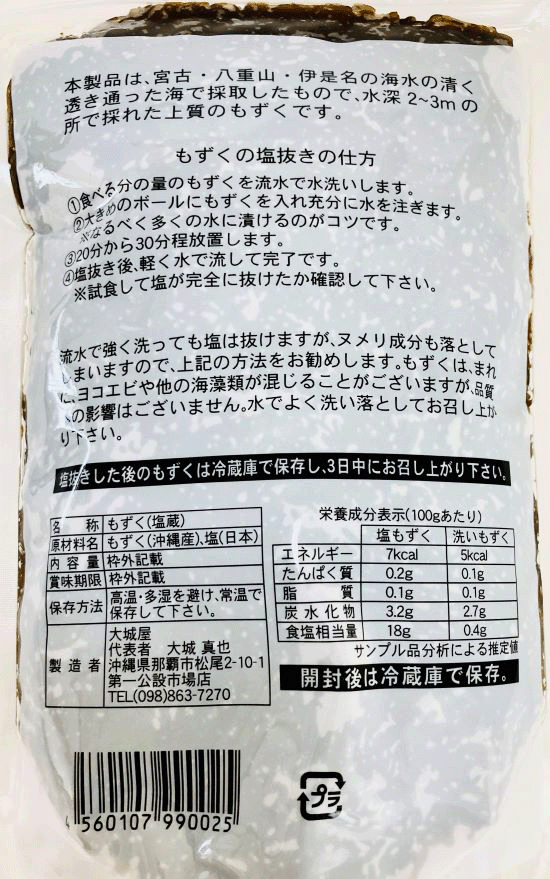 本製品は、宮古・八重山・伊是名の海水の清く
透き通った海で採取したもので、水深2~3mの
所で採れた上質のもずくです。
もずくの塩抜きの仕方
①食べる分の量のもずくを流水で水洗いします。
②大きめのボールにもずくを入れ充分に水を注ぎます。
※なるべく多くの水に漬けるのがコツです。
③20分から30分程放置します。
④塩抜き後、軽く水で流して完了です。
※試食して塩が完全に抜けたか確認して下さい。
流水で強く洗っても塩は抜けますが、ヌメリ成分も落として
しまいますので、上記の方法をお勧めします。もずくは、まれ
に、ヨコエビや他の海藻類が混じることがございますが、品質
への影響はございません。水でよく洗い落としてお召し上が
り下さい。
塩抜きした後のもずくは冷蔵庫で保存し、3日中にお召し上がり下さい。
名称 もずく(塩蔵)
原材料名 もずく(沖縄産)、塩(日本)
内容量 枠外記載
賞味期限 枠外記載
保存方法 高温・多湿を避け、常温で
保存して下さい。
製造者 大城屋
代表者 大城 真也
沖縄県那覇市松尾2-10-1
第一公設市場店
TEL(098)863-7270
栄養成分表示(100gあたり)
塩もずく 洗いもずく
エネルギー 7kcal 5kcal
たんぱく質 0.2g 0.1g
脂質 0.1g 0.1g
炭水化物 3.2g 2.7g
食塩相当量 18g 0.4g
サンプル品分析による推定値
開封後は冷蔵庫で保存。
4 560107 990025
プラ